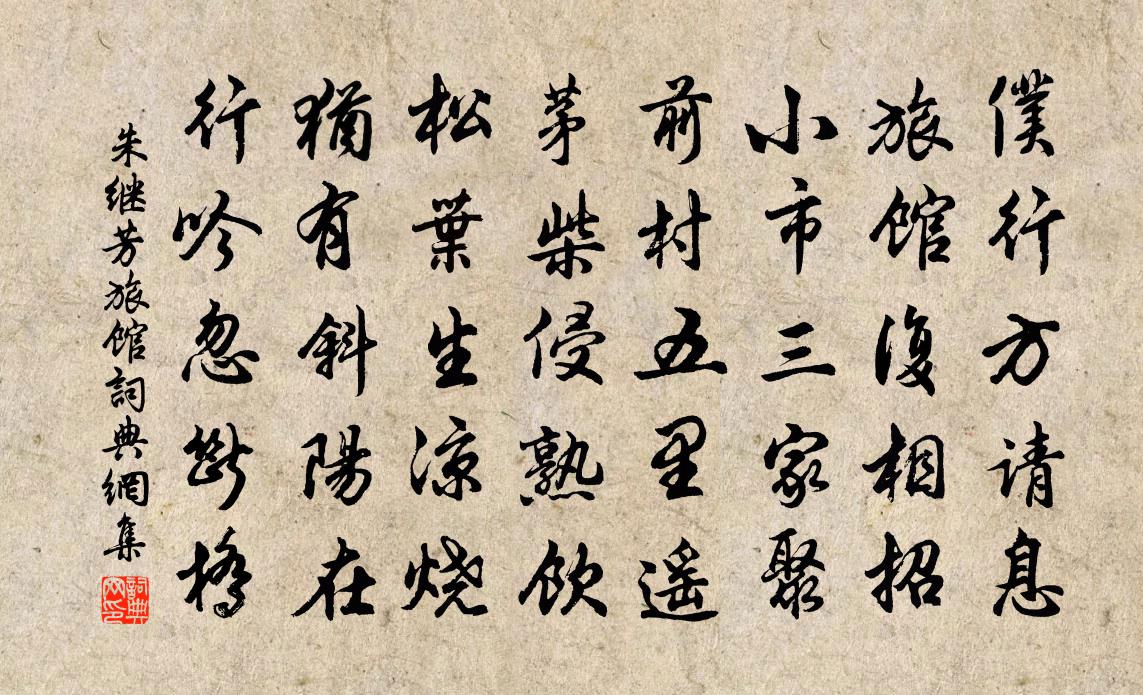 僕行方请息
旅馆復相招
小市三家聚
前村五里遥
茅柴侵熟飲
松葉生凉烧
猶有斜陽在
行吟忽斷橋
朱继芳旅馆詞典網集
詞典網印